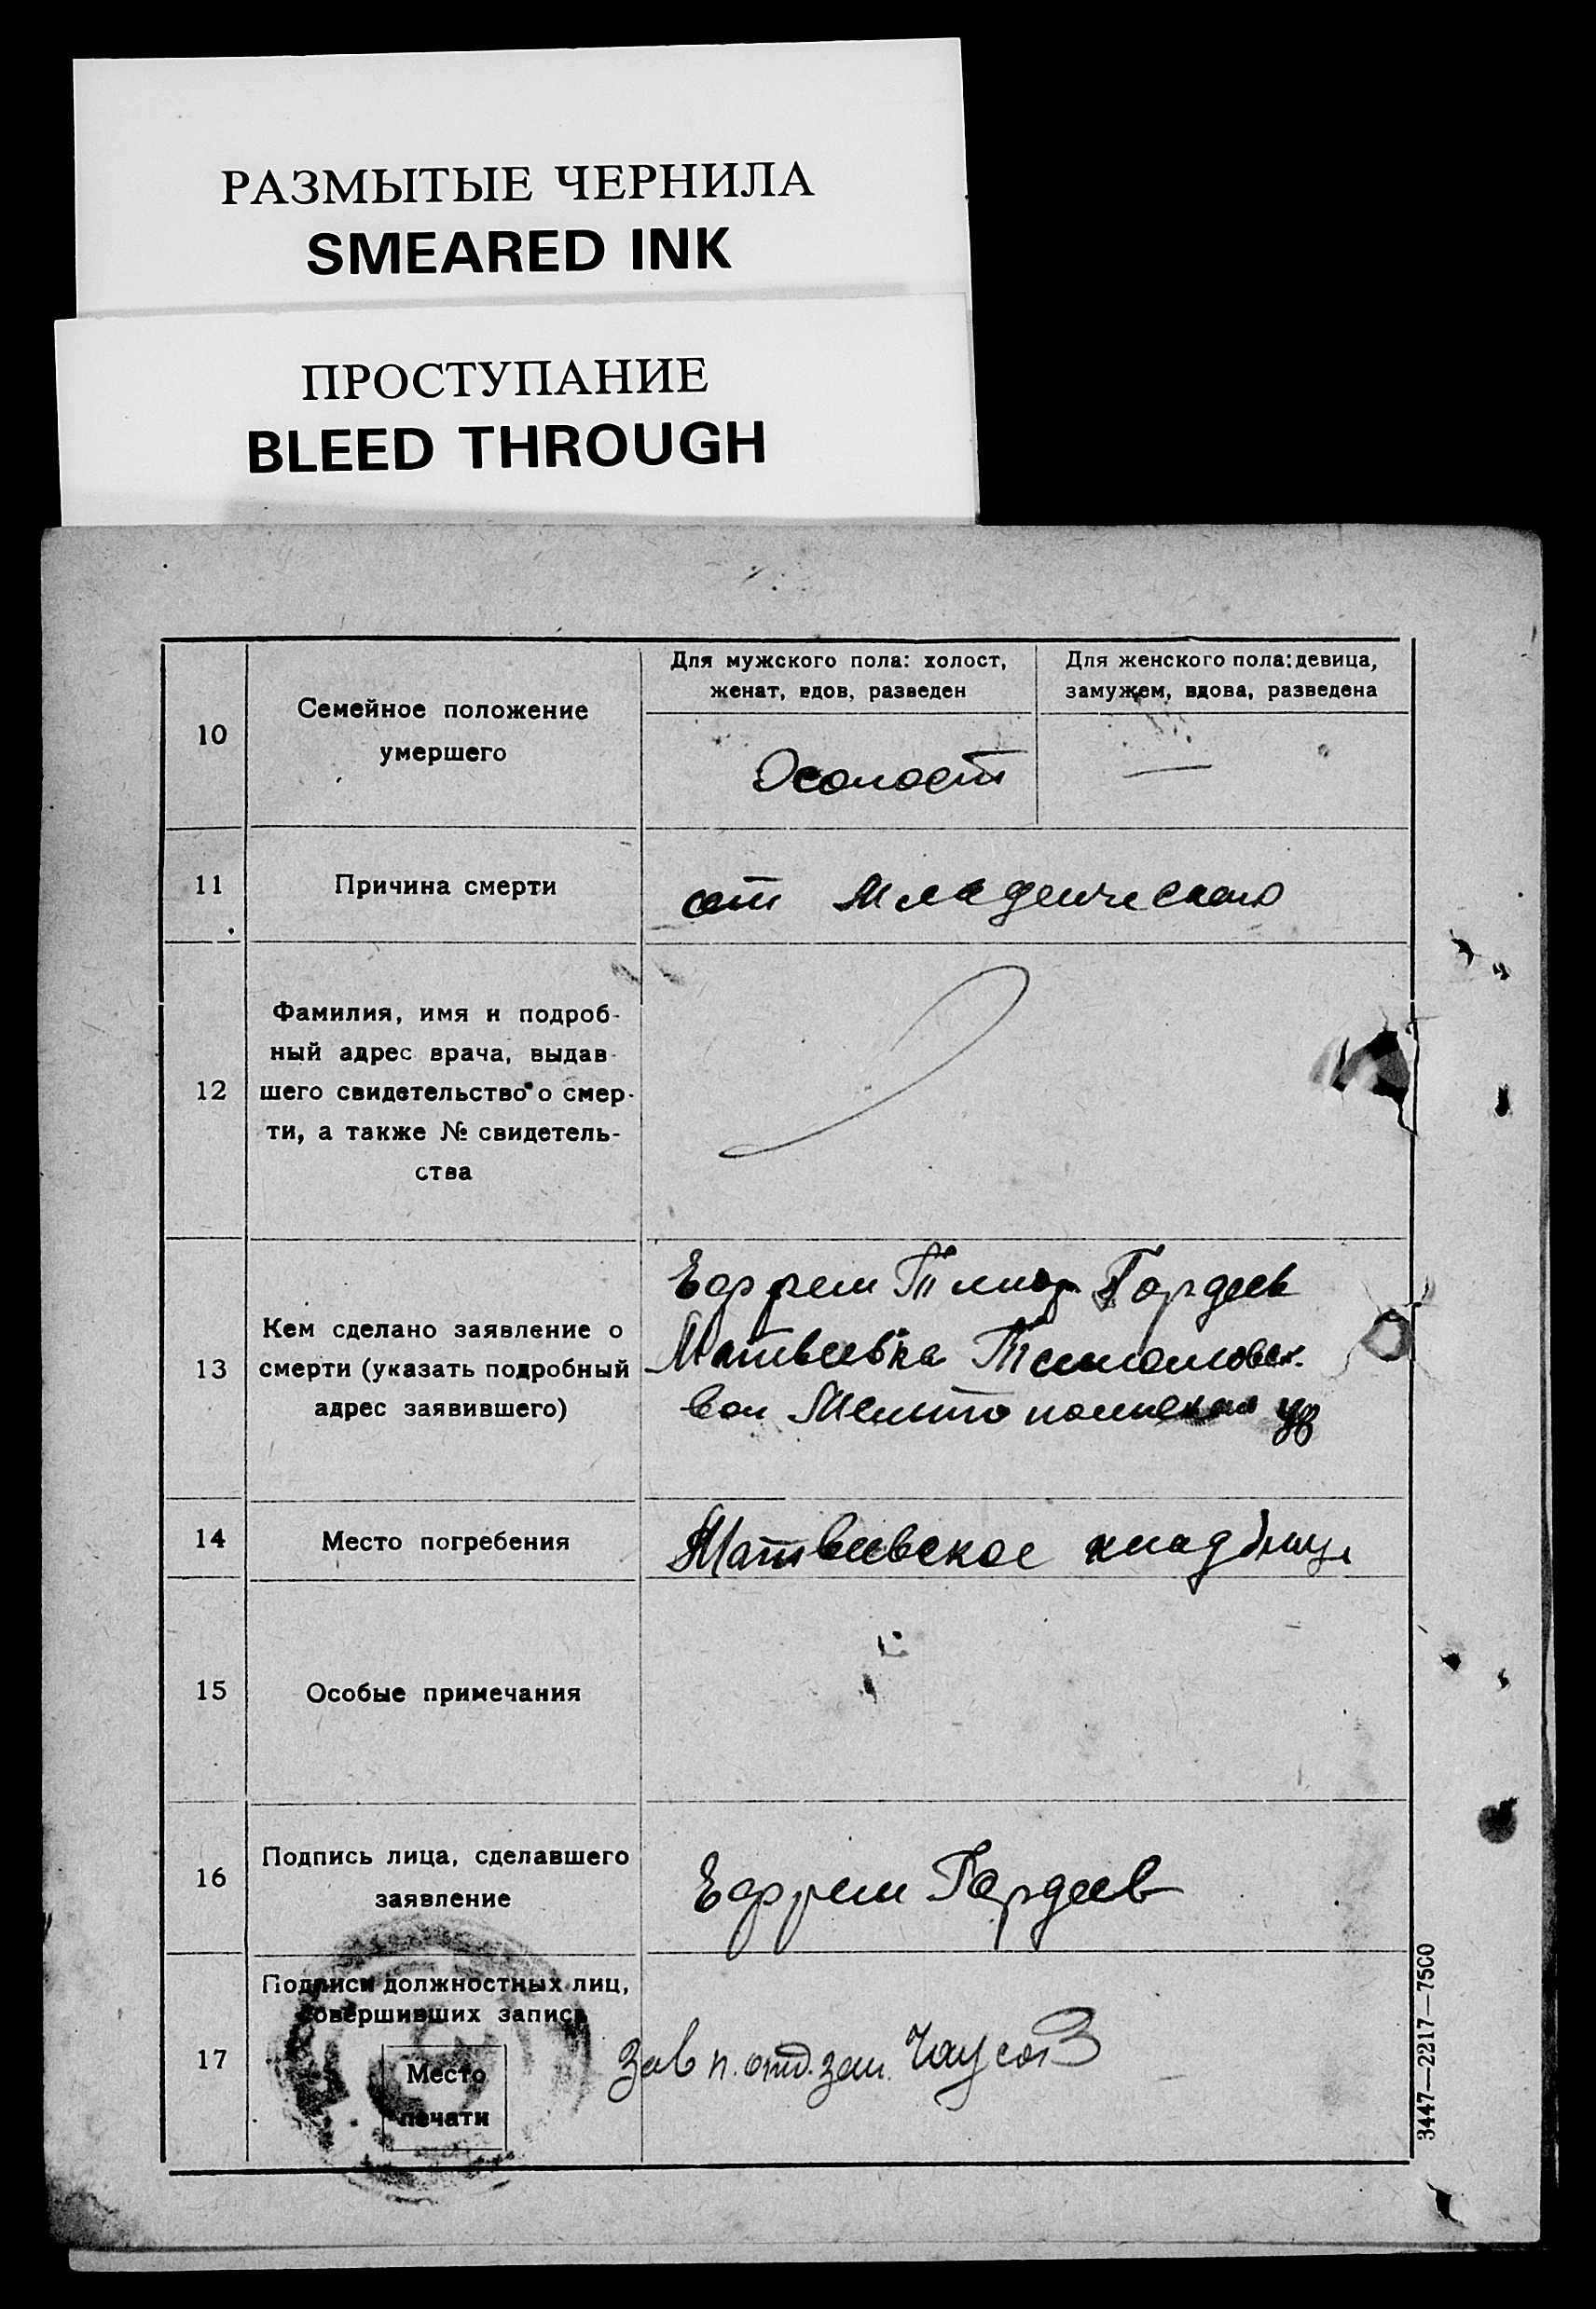 РАЗМЫТЫЕ ЧЕРНИЛА
SMEARED INK
ПРОСТУПАНИЕ
BLEED THROUGH
10
Семейное положение
умершего
Для мужского пола: холост,
женат, вдов, разведен
Для женского пола: девица,
замужем, вдова, разведена
Холост
—
11
Причина смерти
от Младенческого
12
Фамилия, имя и подроб-
ный адрес врача, выдав-
шего свидетельство о смер-
ти, а также № свидетель-
ства
13
Кем сделано заявление о
смерти (указать подробный
адрес заявившего)
Ефрем Гордеев
Матвеевка
вол Мелитопольского у
14
Место погребения
Матвеевское
15
Особые примечания
16
Подпись лица, сделавшего
заявление
Ефрем Гордеев
17
Подписи должностных лиц,
совершивших запись
Место
печати
Зав п. отд. зап. Чаусов
3447—2217—7500